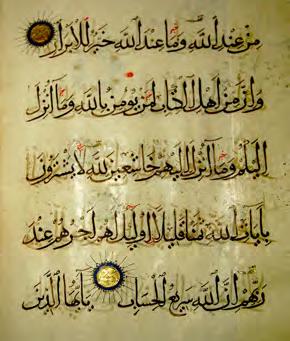 من عند الله وما عند الله خير للأبرار
وإن من أهل الكتاب لمن يؤمن بالله وما أنزل
إليكم وما أنزل إليهم خاشعين لله لا يشترون
بآيات الله ثمنا قليلا أولئك لهم أجرهم عند
ربهم إن الله سريع الحساب يا أيها الذين